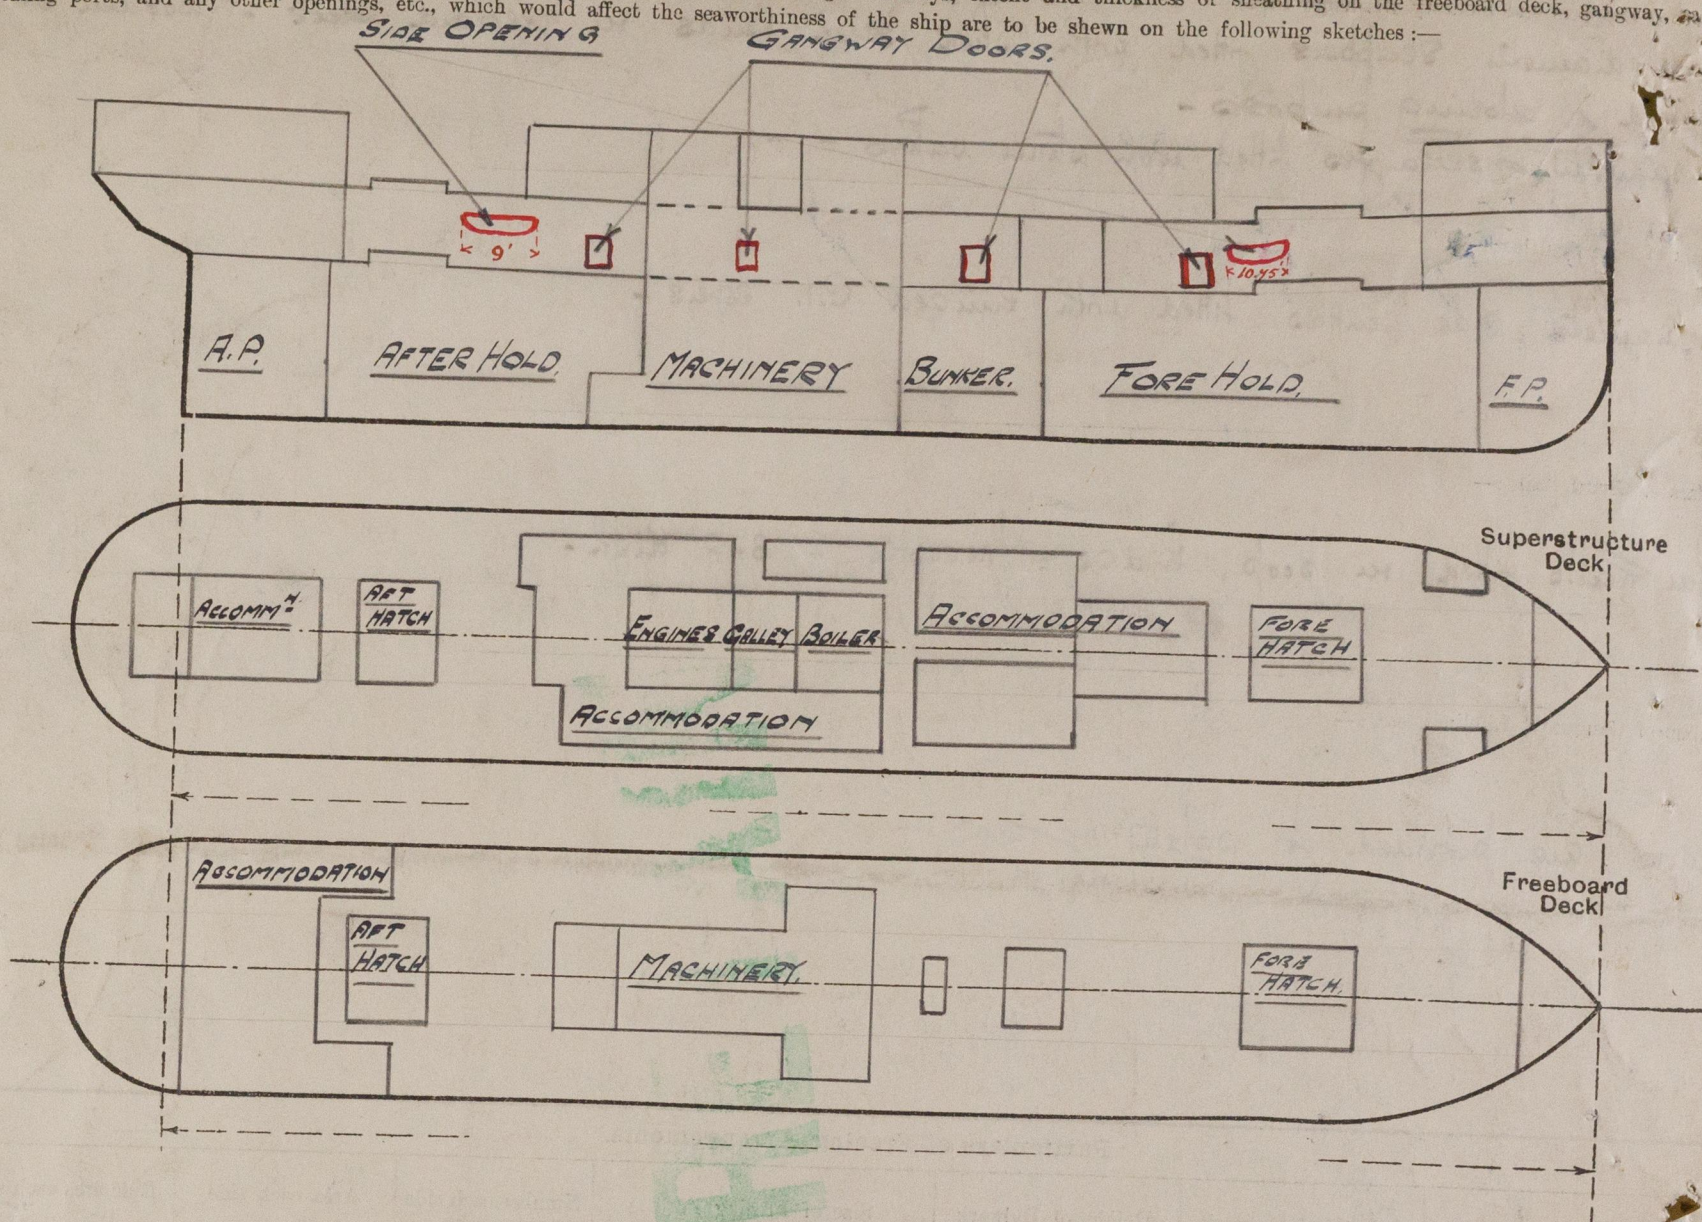 and any other openings, etc., which would affect the seaworthiness of the ship are to be shewn on the following sketches :—
SIDE OPENING
GANGWAY DOORS.
9'
10.45'
A.P.
AFTER HOLD.
MACHINERY
BUNKER.
FORE HOLD.
F.P.
Superstructure
Deck
ACCOMMN
AFT
HATCH
ENGINES GALLEY BOILER
ACCOMMODATION
FORE
HATCH
ACCOMMODATION
Freeboard
Deck
ACCOMMODATION
AFT
HATCH
MACHINERY.
FORE
HATCH.